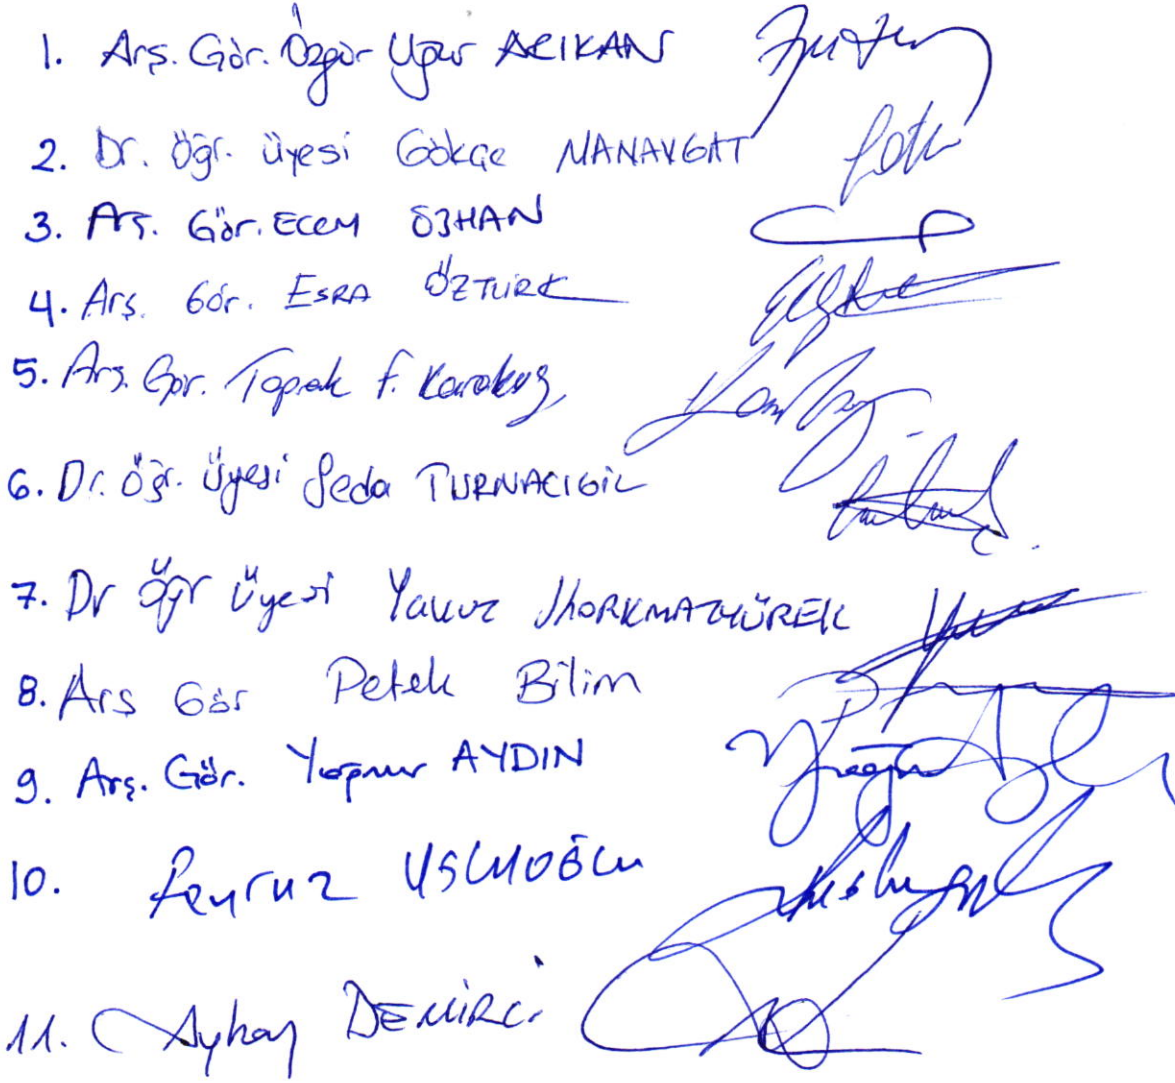 1. Arş. Gör. Özgür Uğur ARIKAN
2. Dr. Öğr. Üyesi Gökçe MANAVGAT
3. Arş. Gör. Ecem ÖZHAN
4. Arş. Gör. ESRA ÖZTÜRK
5. Arş. Gör. Toprak F. Karakuş
6. Dr. Öğr. Üyesi Seda TURNACIGİL
7. Dr Öğr Üyesi Yavuz KORKMAZYÜREK
8. Ars Gör Petek Bilim
9. Arş. Gör. Yağmur AYDIN
10. Feyruz USLUOĞLU
11. Aykay DEMİRCİ